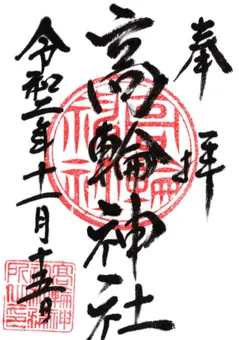 奉拝
高輪神社
令和二年十一月十五日